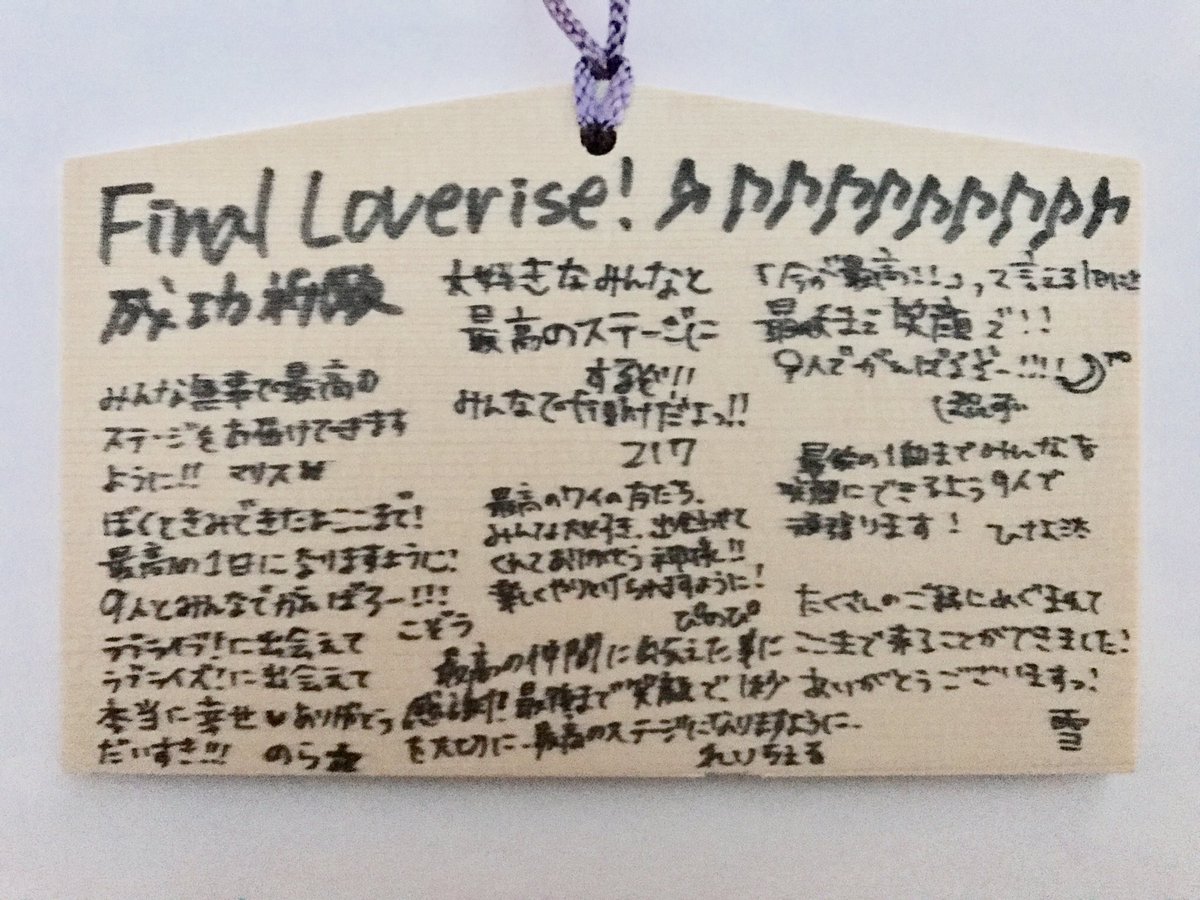 Final Loverise! ♪♪♪♪♪♪♪♪♪
成功祈願
みんな無事で最高の
ステージをお届けできます
ように!! マリス
ぼくときみできたよここまで!
最高の1日になりますように!
9人とみんなでがんばろー!!!
こぞう
ラブライブ!に出会えて
ラブライズ!に出会えて
本当に幸せ♥ありがとう
だいすき!!! のら★
大好きなみんなと
最高のステージに
するぞ!!
みんなで片付けだよっ!!
217
最高のワイの友だち、
みんな大好き、出会わせて
くれてありがとう神様!!
楽しくやりとげられますように!
ぴのぴ
最高の仲間に出会えた事に
感謝! 最後まで笑顔で、1秒
を大切に、最高のステージになりますように、
れいちぇる
「今が最高!!」って言える1日に
最後まで笑顔で!!
9人でがんばるぞー!!!!
最後の1曲までみんなを
笑顔にできるよう9人で
頑張ります! ひなた
たくさんのご縁にめぐまれて
ここまで来ることができました!
ありがとうございますっ!
雪